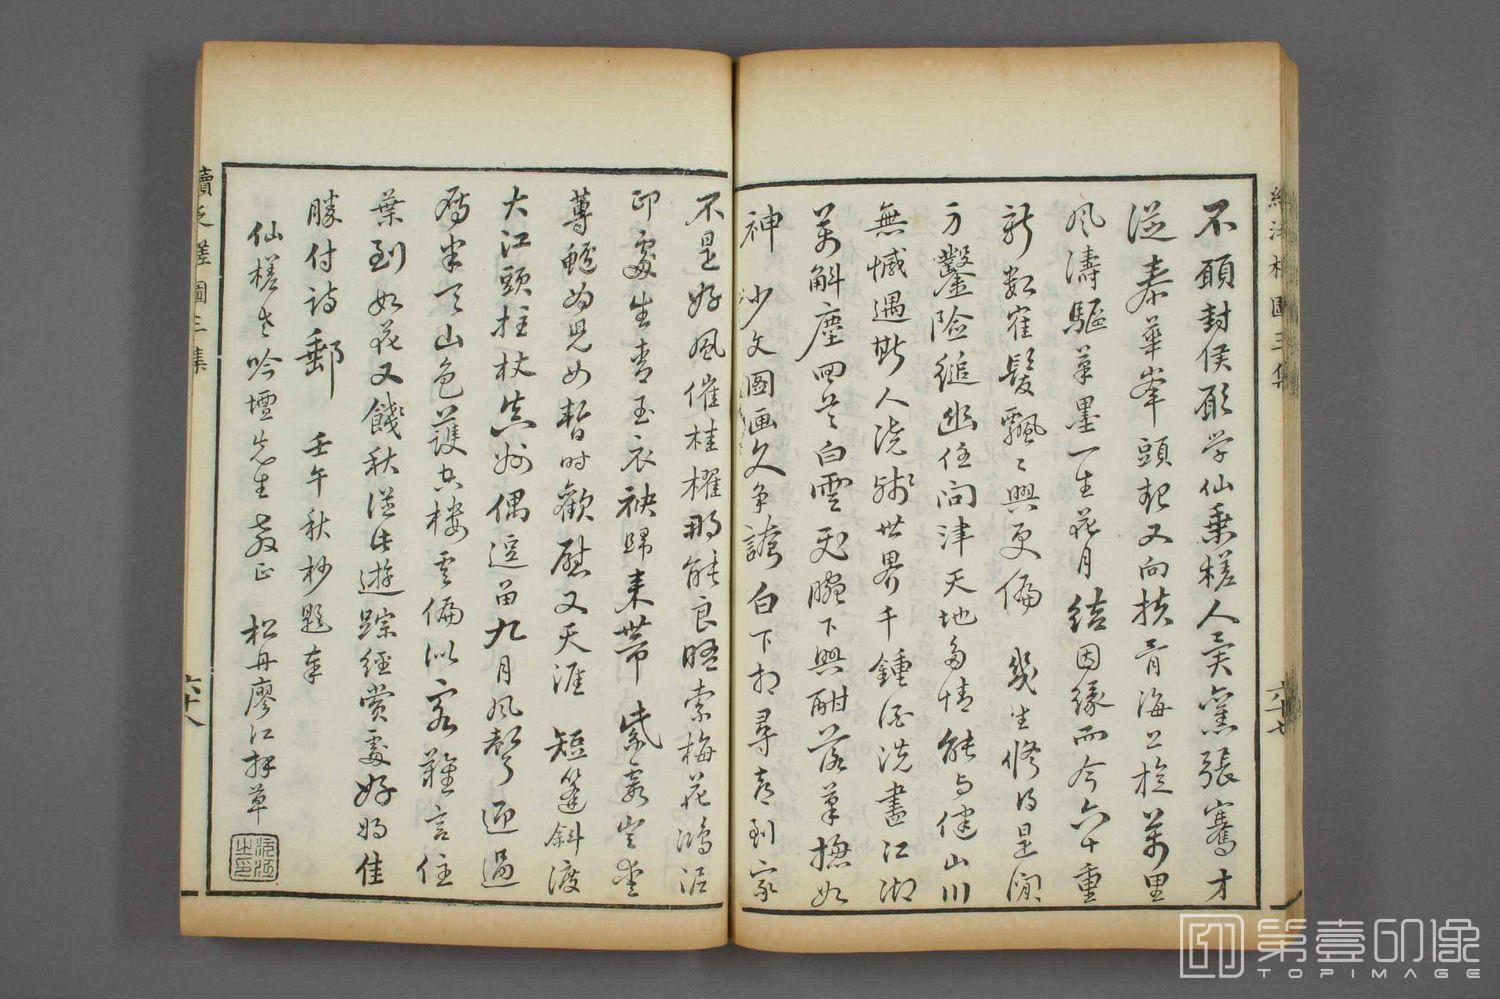 不願封侯願学仙乗槎人笑應張騫才
從泰華峯頭起又向扶胥海上旋萬里
風濤驅筆墨一生花月結因緣而今六十重
新數雀髮飄〻興更偏 幾生修得是閒
方鑿險縋幽任問津天地多情能与健山川
無憾遇斯人澆殘世界千鍾酒洗盡江湖
萬斛塵四百白雲飛腕下興酣落筆撫如
神 沙文圖画久争誇白下相尋喜到家
不是好風催桂櫂那能良晤索梅花鴻泥
印處生青玉衣袂歸來帶紫霞
蓴鱸如兒女暫時歡慰又天涯 短篷斜渡
大江頭拄杖偶逗留九月風聲迎過
雁半天山色護書樓雲偏似客難言住
葉到如花又餞秋從此遊踪經賞處好為佳
勝付詩郵 壬午秋杪題奉
仙槎老吟壇先生教正 松丹廖江拜草
續泛槎圖三集
六十八
續泛槎圖三集
六十七
第壹印像
TOPIMAGE